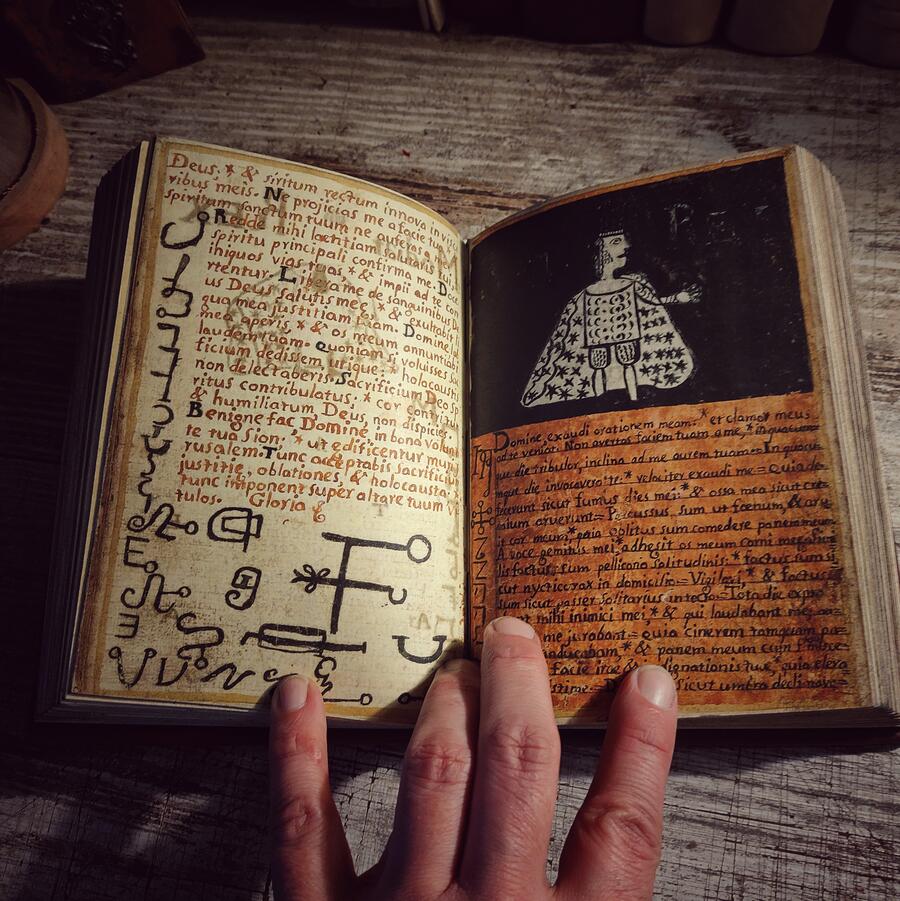 Deus: * & spiritum rectum innova in visce
ribus meis. Ne projicias me a facie tua
spiritum sanctum tuum ne auferas
Redde mihi laetitiam salutaris
spiritu principali confirma me. Doce
iniquos vias tuas * & impii ad te con
rtentur. Libera me de sanguinibus De
us Deus salutis meae * & exultabit
gua mea justitiam tuam. Domine la
mea aperis, * & os meum annuntiabit
laudem tuam. Quoniam si voluisses
ficium dedissem utique: * holocaustis
non delectaberis. Sacrificium Deo Sp
ritus contribulatus, * cor contri
& humiliatum Deus non dispicies.
Benigne fac Domine in bona volun
te tua Sion, * ut edificentur muri
rusalem. Tunc acceptabis sacrificiu
justitie, oblationes, & holocausta:
tunc imponent super altare tuum V
tulos. Gloria &
Domine, exaudi orationem meam: * et clamor meus
ad te veniat. Non avertas faciem tuam a me, * in quacum
que die tribulor, inclina ad me aurem tuam = In quacu
mque die invocavero te: * velociter exaudi me = quia de
fecerunt sicut fumus dies mei: * & ossa mea sicut cre
mium aruerunt = Percussus, sum ut foenum, & aru
it cor meum, quia oblitus sum comedere panem meum
A voce gemitus mei, adhesit os meum carni meae
lis factus, sum pellicano solitudinis: * factus sum si
cut nycticorax in domicilio = Vigilavi, * & factus
sum sicut passer solitarius in tecto = Tota die expro
mihi inimici mei, * & qui laudabant me
me jurabant = quia cinerem tamquam pa=
manducabam * & panem meum cum
facie irae & indignationis tuae * quia eleva
sicut umbra declinave=